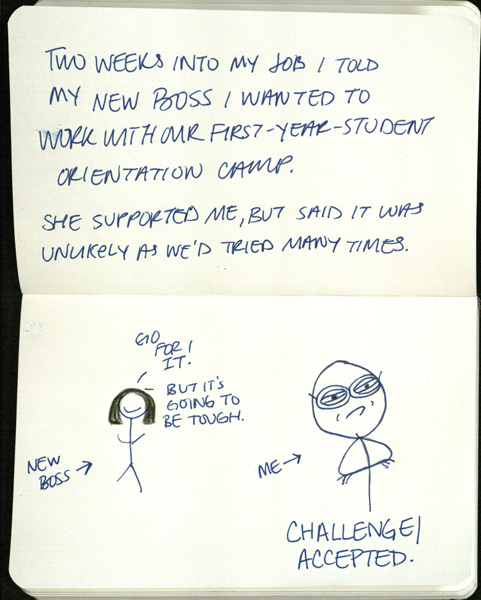 TWO WEEKS INTO MY JOB I TOLD
MY NEW BOSS I WANTED TO
WORK WITH OUR FIRST-YEAR-STUDENT
ORIENTATION CAMP.
SHE SUPPORTED ME, BUT SAID IT WAS
UNLIKELY AS WE'D TRIED MANY TIMES.
GO
FOR
IT.
BUT IT'S
GOING TO
BE TOUGH.
NEW
BOSS →
ME →
CHALLENGE
ACCEPTED.